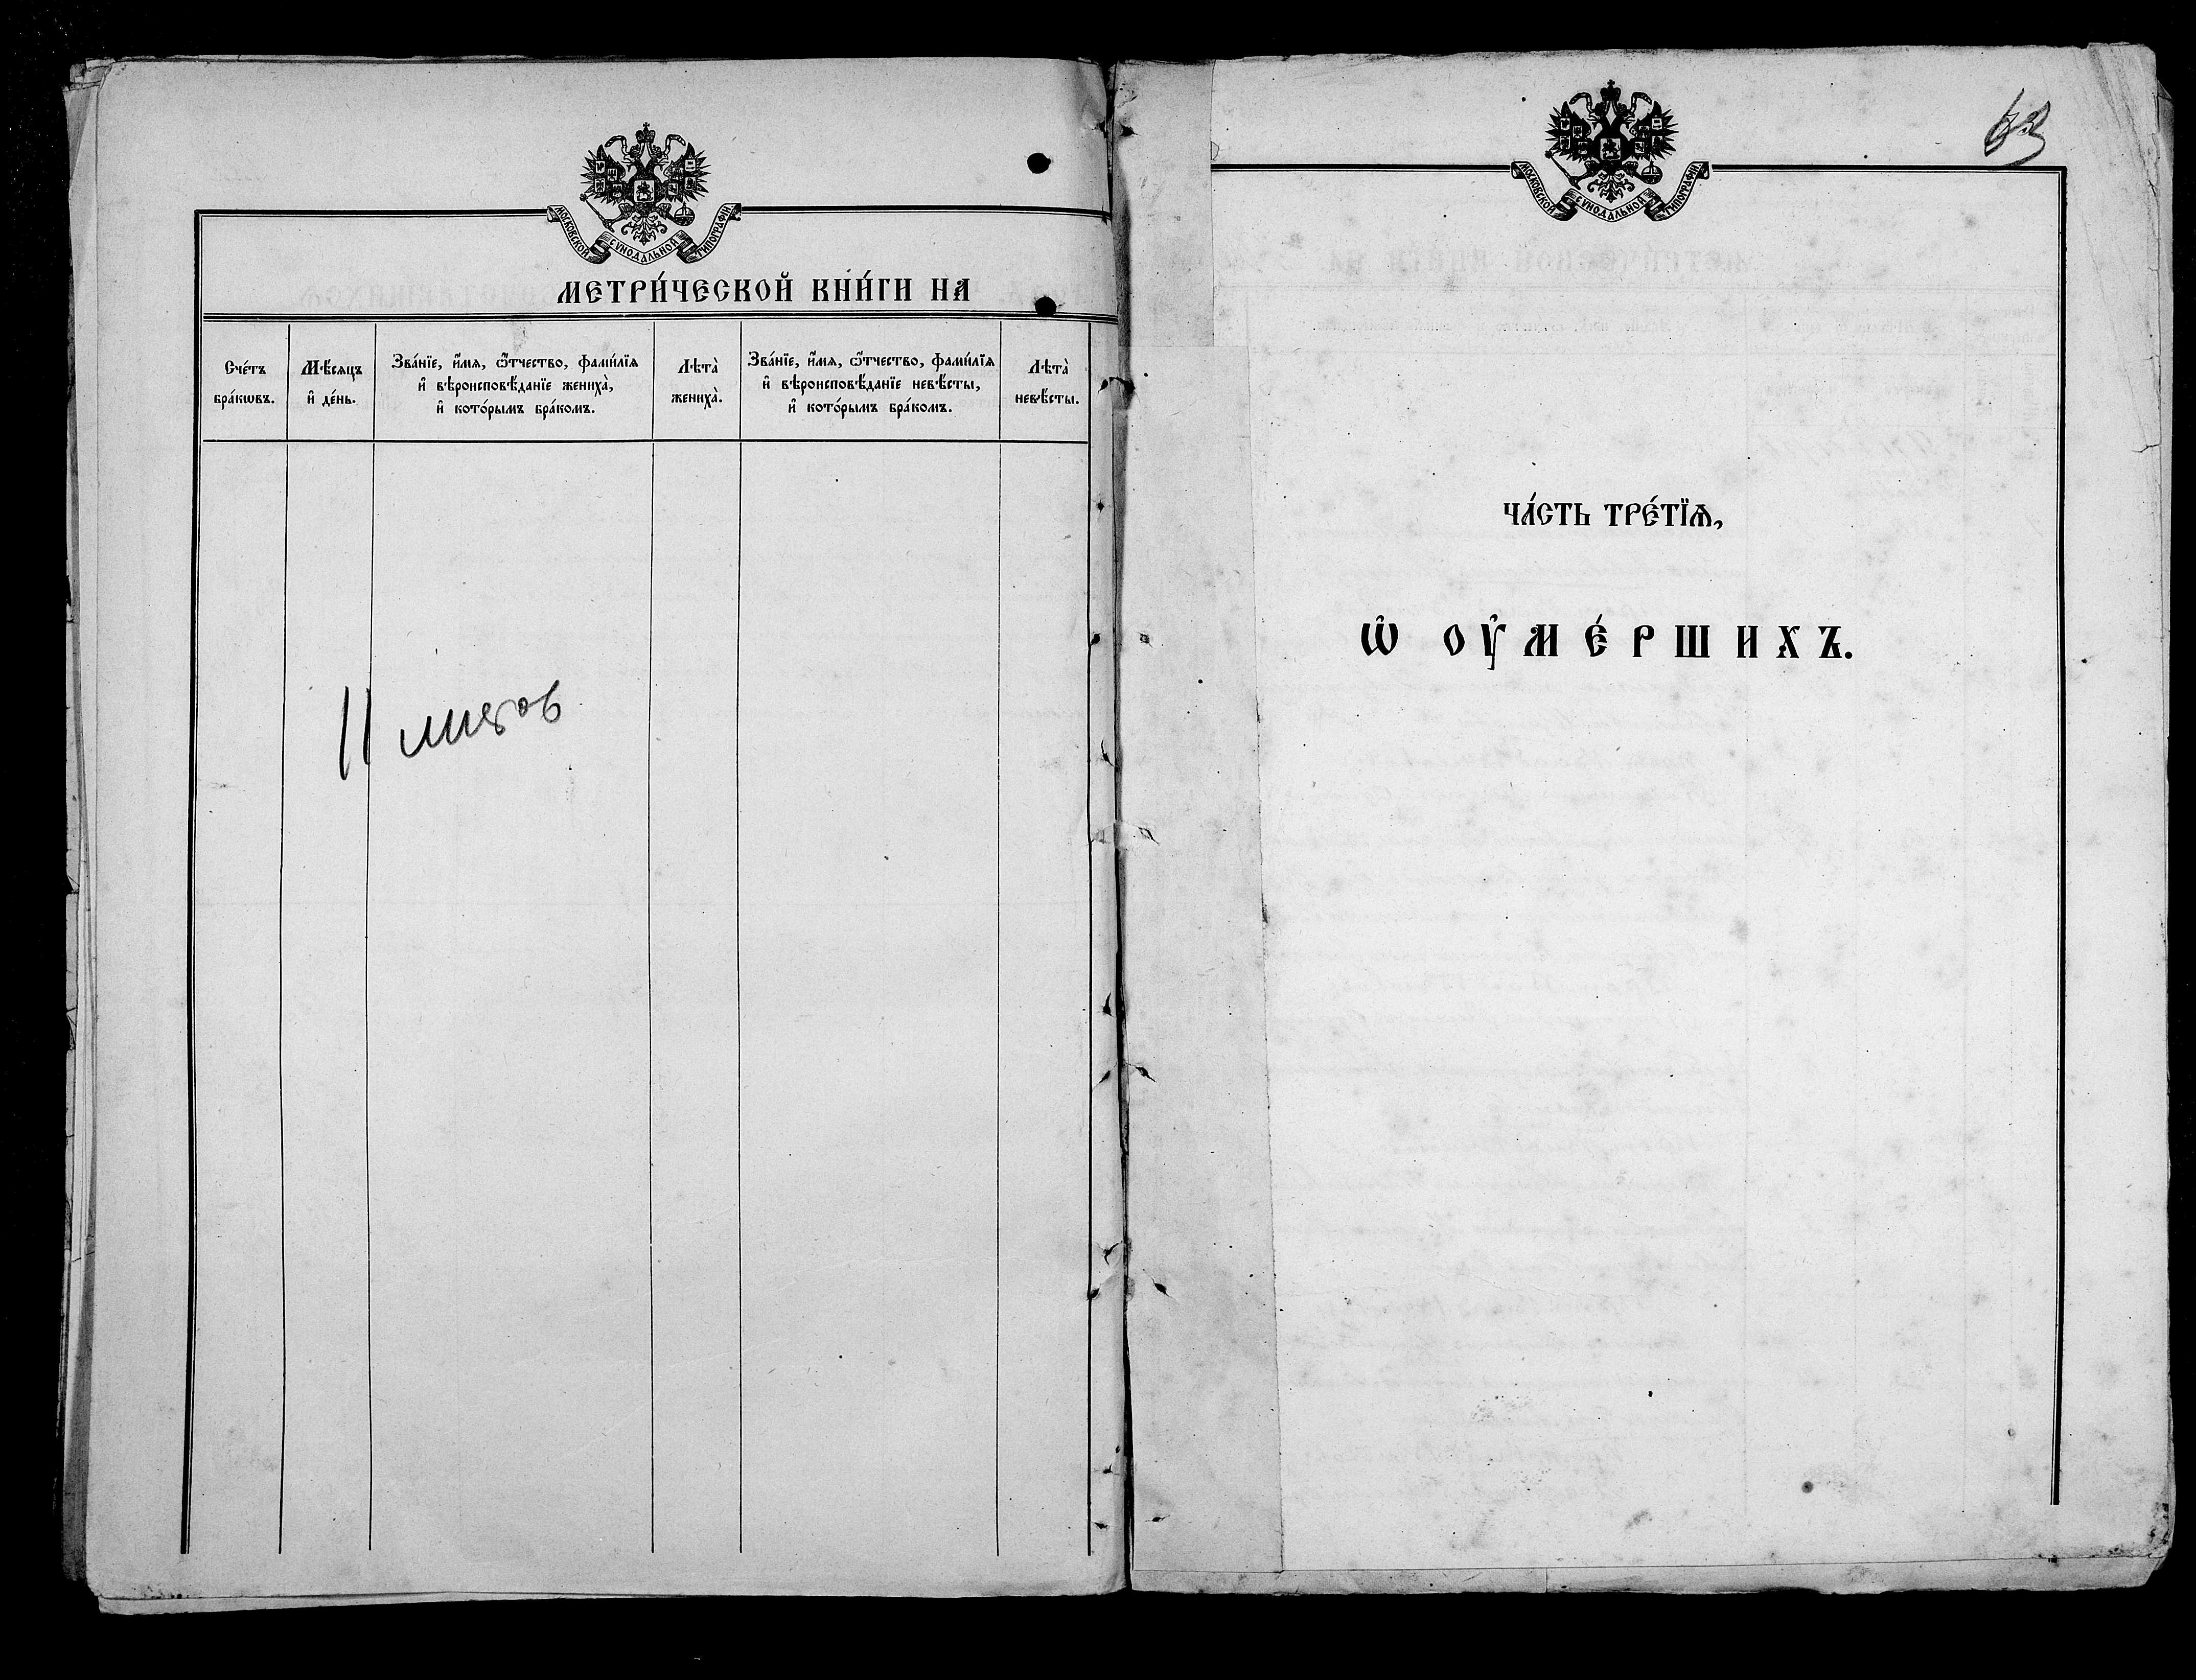 МОСКОВСКОЙ СУНОДАЛЬНОЙ ТИПОГРАФІИ.
МЕТРИ́ЧЕСКОЙ КНИ́ГИ НА
Сче́тъ бра́кѡвъ.
Мѣ́сяцъ и҆ де́нь.
Зва́нїе, и҆́мя, ѻ҆́тчество, фами́лїя
и҆ вѣроисповѣ́данїе жениха̀,
и҆ кото́рымъ бра́комъ.
Лѣта̀ жениха̀.
Зва́нїе, и҆́мя, ѻ҆́тчество, фами́лїя
и҆ вѣроисповѣ́данїе невѣ́сты,
и҆ кото́рымъ бра́комъ.
Лѣта̀ невѣ́сты.
11 листов
МОСКОВСКОЙ СУНОДАЛЬНОЙ ТИПОГРАФІИ.
ЧА́СТЬ ТРЕ́ТЇѦ,
Ѡ҆ ОУ҆МЕ́РШИХЪ.